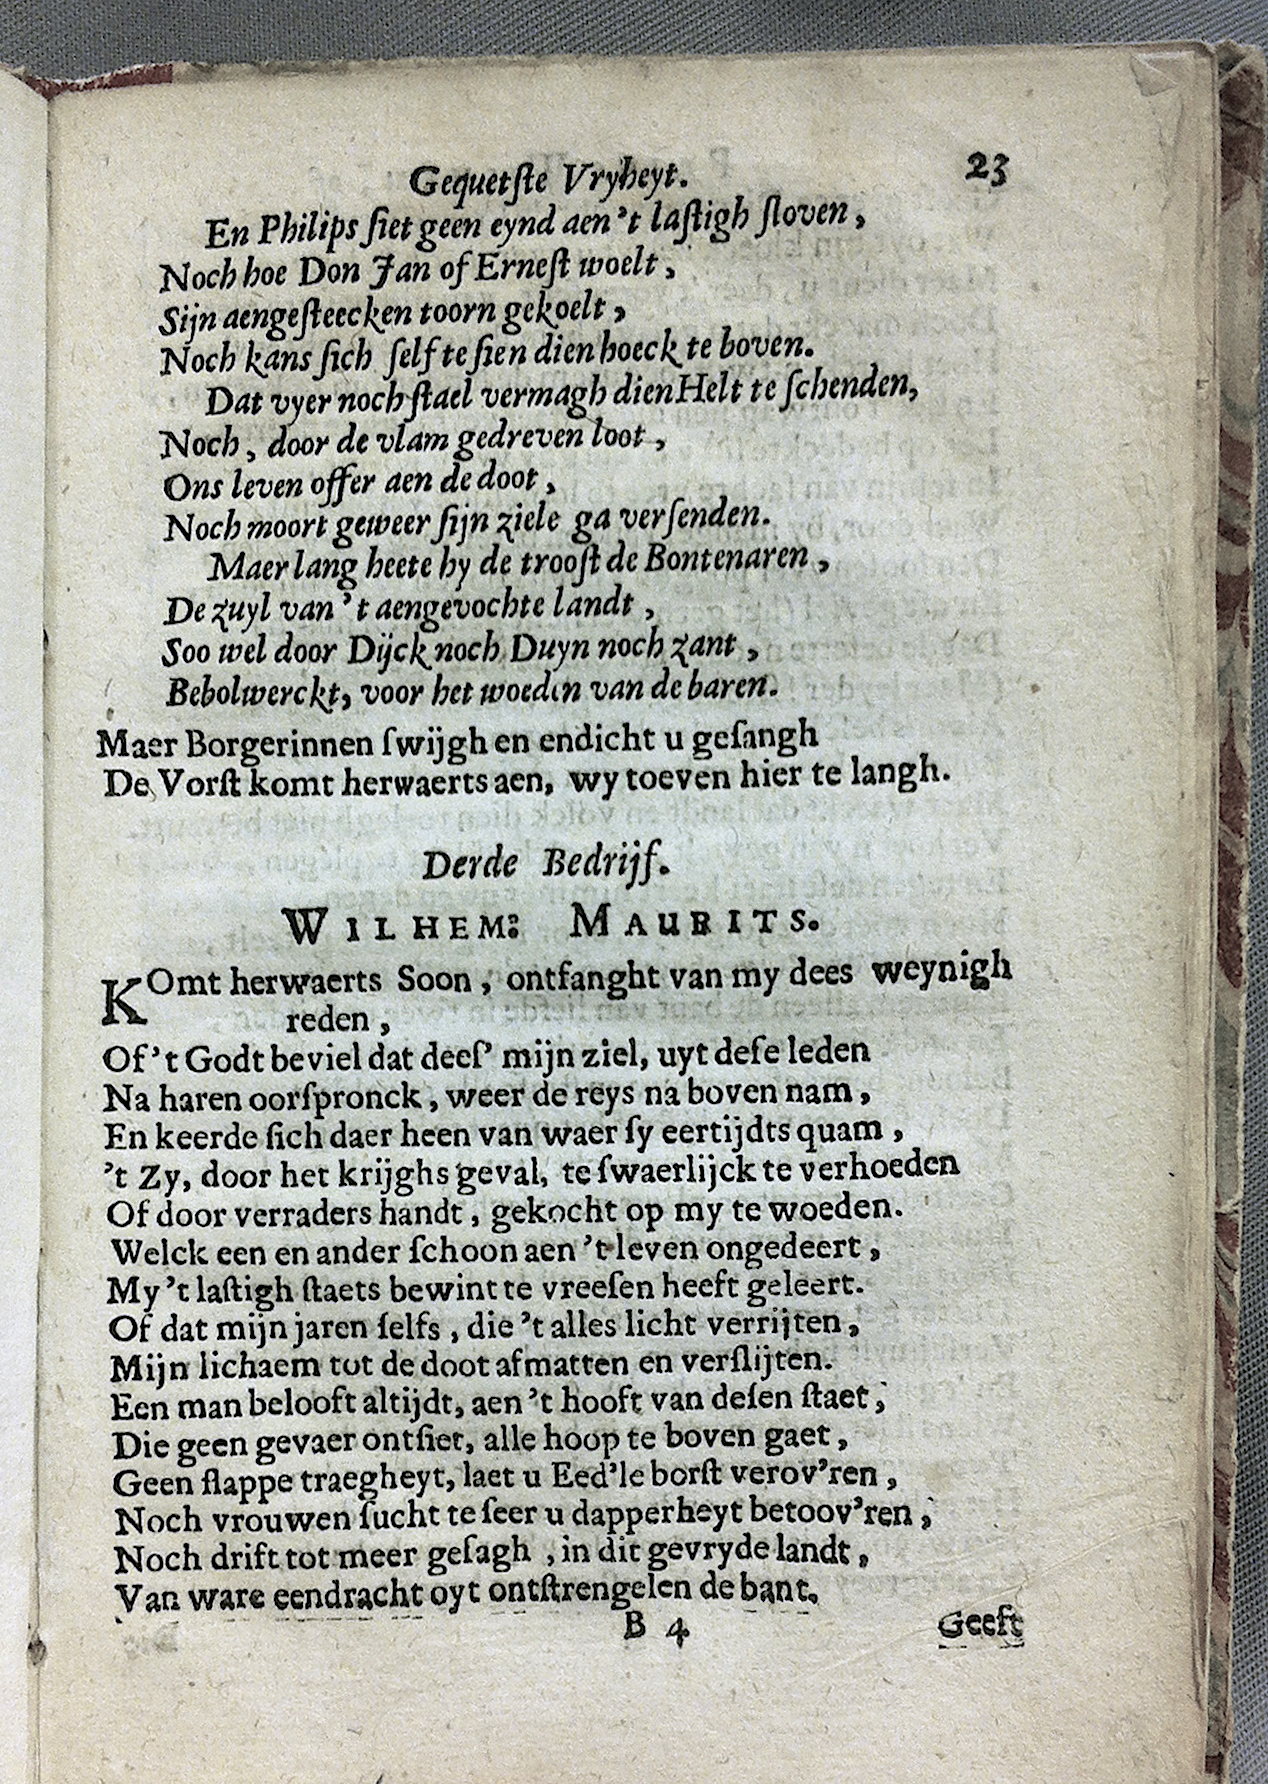 Gequetſte Vryheyt. 23
En Philips ſiet geen eynd aen't laſtigh ſloven,
Noch hoe Don Jan of Erneſt woelt,
Sijn aengeſteecken toorn gekoelt,
Noch kans ſich ſelf te ſien dien hoeck te boven.
Dat vyer noch ſtael vermagh dien Helt te ſchenden,
Noch, door de vlam gedreven loot,
Ons leven offer aen de doot,
Noch moort geweer ſijn ziele ga verſenden.
Maer lang heete hy de trooſt de Bontenaren,
De zuyl van 't aengevochte landt,
Soo wel door Dijck noch Duyn noch zant,
Bebolwerckt, voor het woeden van de baren.
Maer Borgerinnen ſwijgh en endicht u geſangh
De Vorſt komt herwaerts aen, wy toeven hier te langh.
Derde Bedrijf.
WILHEM: MAURITS.
KOmt herwaerts Soon, ontfanght van my dees weynigh
reden,
Of 't Godt beviel dat deeſ' mijn ziel, uyt deſe leden
Na haren oorſpronck, weer de reys na boven nam,
En keerde ſich daer heen van waer ſy eertijdts quam,
't Zy, door het krijghs geval, te ſwaerlijck te verhoeden
Of door verraders handt, gekocht op my te woeden.
Welck een en ander ſchoon aen 't leven ongedeert,
My 't laſtigh ſtaets bewint te vreeſen heeft geleert.
Of dat mijn jaren ſelfs, die 't alles licht verrijten,
Mijn lichaem tot de doot afmatten en verſlijten.
Een man belooft altijdt, aen 't hooft van deſen ſtaet,
Die geen gevaer ontſiet, alle hoop te boven gaet,
Geen ſlappe traegheyt, laet u Eed'le borſt verov'ren,
Noch vrouwen ſucht te ſeer u dapperheyt betoov'ren,
Noch drift tot meer geſagh, in dit gevryde landt,
Van ware eendracht oyt ontſtrengelen de bant.
B 4 Geeft